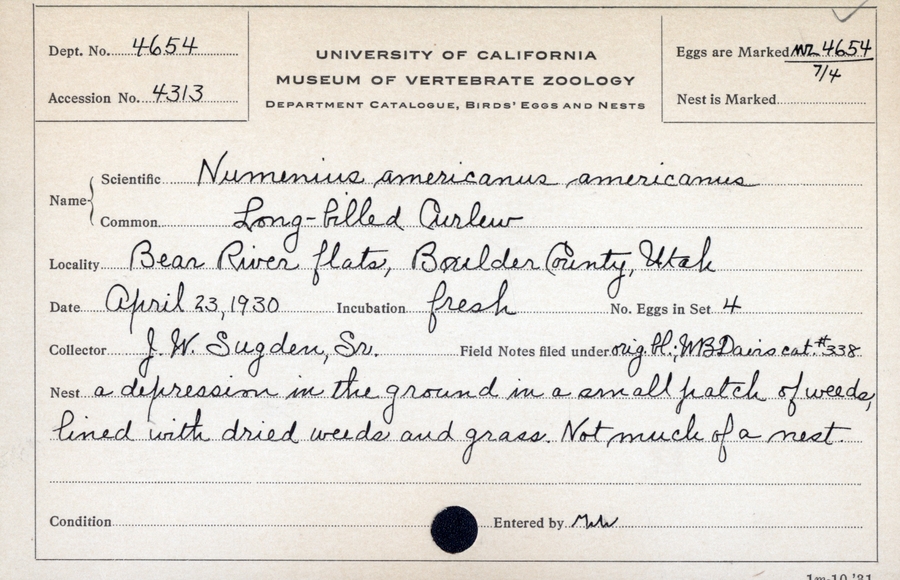 Dept. No. 4654
Accession No. 4313
UNIVERSITY OF CALIFORNIA
MUSEUM OF VERTEBRATE ZOOLOGY
DEPARTMENT CATALOGUE, BIRDS' EGGS AND NESTS
Eggs are Marked 4654
7/4
Nest is Marked
Name
Scientific Numenius americanus americanus
Common Long-billed Curlew
Locality Bear River flats, Boulder County, Utah
Date April 23, 1930 Incubation fresh No. Eggs in Set 4
Collector J. W. Sugden, Sr. Field Notes filed under orig. bl.; WBDavis cat. #338
Nest a depression in the ground in a small patch of weeds,
lined with dried weeds and grass. Not much of a nest.
Condition Entered by
1m-10,'31